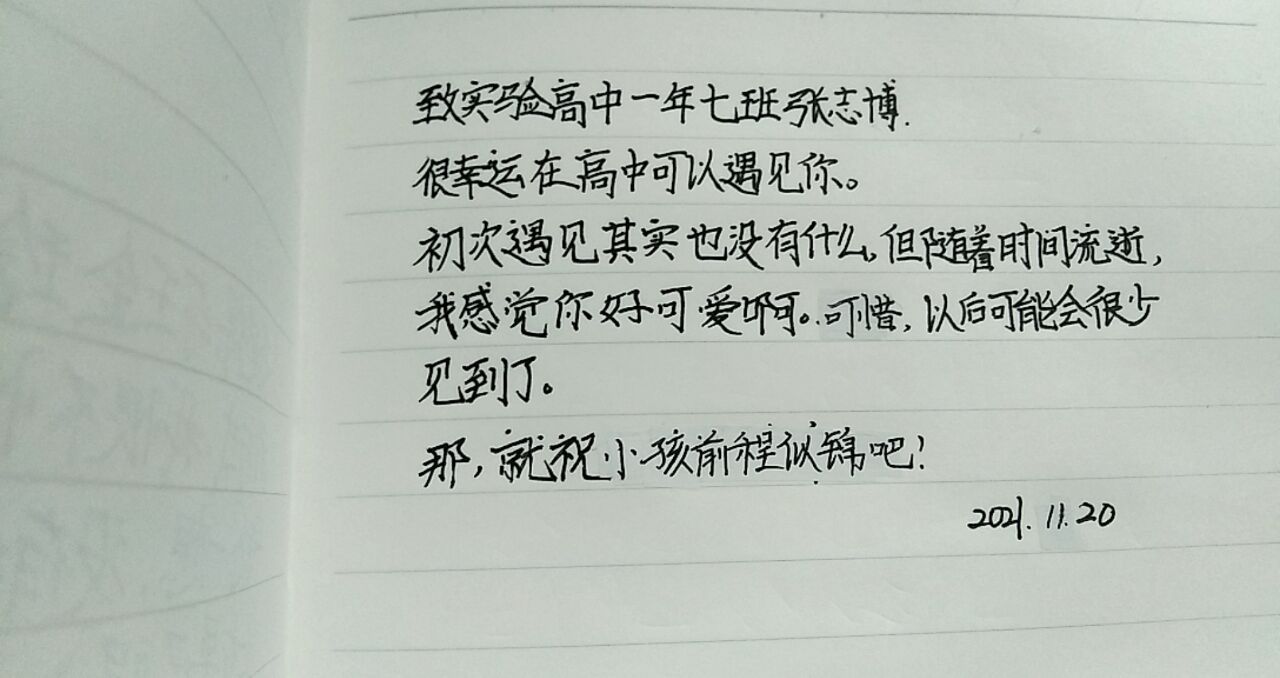 致实验高中一年七班张志博.
很幸运在高中可以遇见你。
初次遇见其实也没有什么,但随着时间流逝,
我感觉你好可爱啊。可惜,以后可能会很少
见到了。
那,就祝小孩前程似锦吧!
2021.11.20